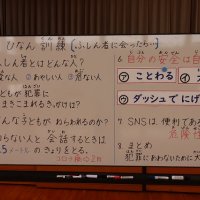 ひなん訓練(ふしん者に会ったら…
しん者とはどんな人?
な人 ②あやしい人 ③危ない人
どもが犯罪に
まきこまれるきっかけは?
子どもがねらわれるのか?
らない人と会話するときは
.5メートルのきょりをとる。
6 自分の安全は自
㋐ ことわる
㋒ ダッシュでにげ
7. SNSは便利である
危険性
8. まとめ
犯罪にあわないために大